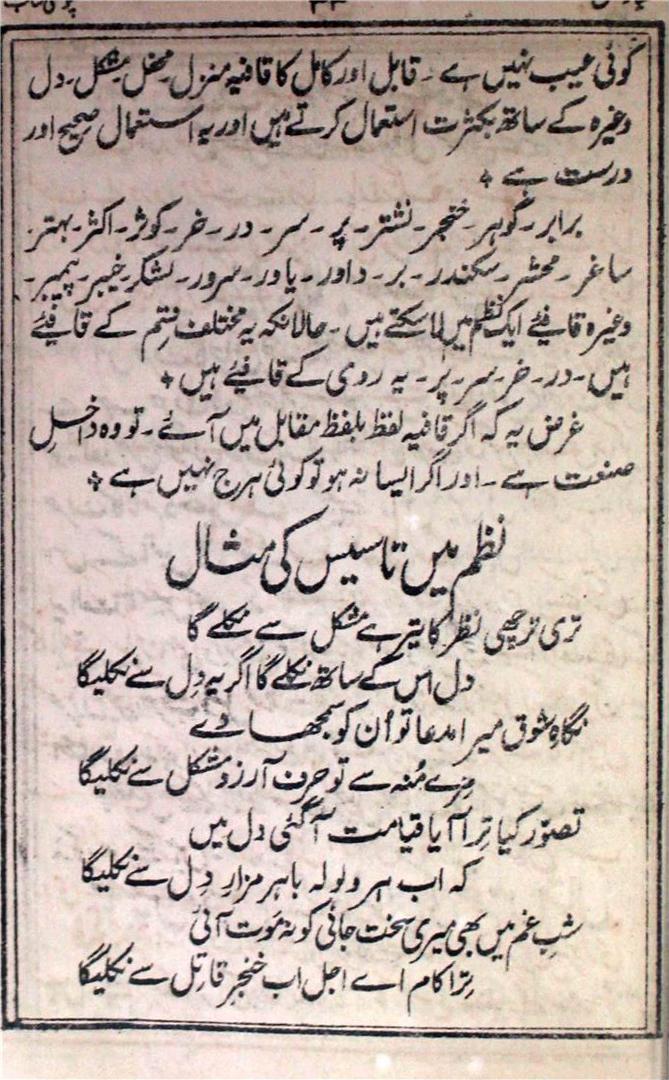 ۳۳
کوئی عیب نہیں ہے ۔ قابل اور کامل کا قافیہ منزل ۔ محفل ۔ مشکل ۔ دل
وغیرہ کے ساتھ بکثرت استعمال کرتے ہیں اور یہ استعمال صحیح اور
درست ہے ٭
برابر ۔ گوہر ۔ خنجر ۔ نشتر ۔ پر ۔ سر ۔ در ۔ خر ۔ کوثر ۔ اکثر ۔ بہتر ۔
ساغر ۔ محشر ۔ سکندر ۔ بر ۔ داور ۔ یاور ۔ سرور ۔ لشکر ۔ خیبر ۔ پیمبر ۔
وغیرہ قافیئے ایک نظم میں لا سکتے ہیں ۔ حالانکہ یہ مختلف قسم کے قافیئے
ہیں ۔ در ۔ خر ۔ سر ۔ پر ۔ یہ روی کے قافیئے ہیں ٭
غرض یہ کہ اگر قافیہ لفظ بلفظ مقابل میں آئے ۔ تو وہ داخلِ
صنعت ہے ۔ اور اگر ایسا نہ ہو تو کوئی ہرج نہیں ہے ٭
نظم میں تاسیس کی مثال
تری ترچھی نظر کا تیر ہے مشکل سے نکلے گا
دل اس کے ساتھ نکلے گا اگر یہ دِل سے نکلیگا
نگاہِ شوق میرا مدعا تو اُن کو سمجھا دے
مِرے مُنہ سے تو حرفِ آرزو مشکل سے نکلیگا
تصوّر کیا تِرا آیا قیامت آ گئی دل میں
کہ اب ہر ولولہ باہر مزارِ دِل سے نکلیگا
شبِ غم میں بھی میری سخت جانی کو نہ مَوت آئی
تِرا کام اے اجل اب خنجرِ قاتِل سے نکلیگا